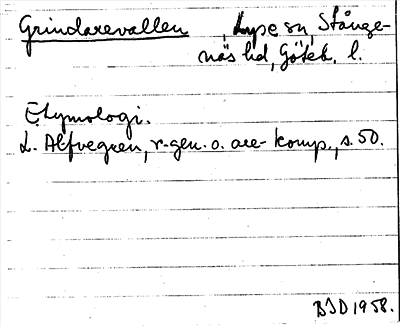 Grindarevallen, Lyse sn, Stånge-
näs hd, Göteb. l.
Etymologi.
L. Alfvegren, r-gen. o. are-komp., s. 50.
BJD 1958.